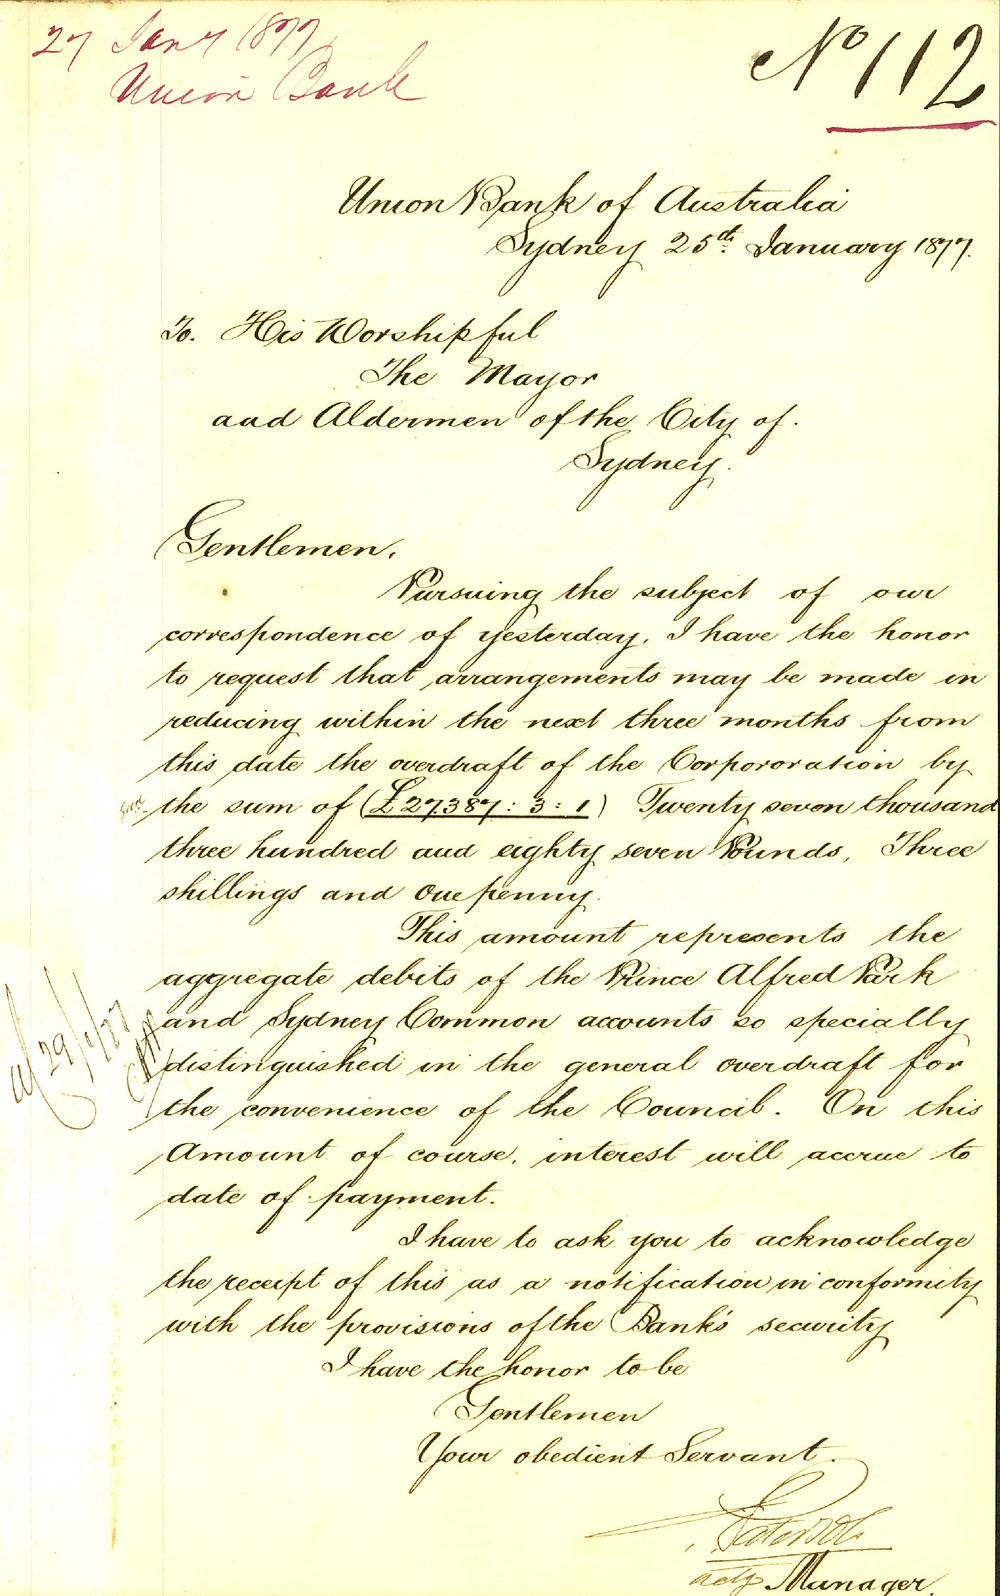 27 Jany 1877
Union Bank
No 112
Union Bank of Australia
Sydney 25th January 1877.
To. His Worshipful
The Mayor
and Aldermen of the City of.
Sydney.
Gentlemen,
Pursuing the subject of our
correspondence of yesterday, I have the honor
to request that arrangements may be made in
reducing within the next three months from
this date the overdraft of the Corpororation by
the sum of (£27.387: 3: 1) Twenty seven thousand
three hundred and eighty seven Pounds, Three
shillings and one penny.
This amount represents the
aggregate debits of the Prince Alfred Park
and Sydney Common accounts so specially
distinguished in the general overdraft for
the convenience of the Council. On this
Amount of course, interest will accrue to
date of payment.
29/1/77
I have to ask you to acknowledge
the receipt of this as a notification in conformity
with the provisions of the Bank's security
I have the honor to be
Gentlemen
Your obedient Servant.
actg Manager.